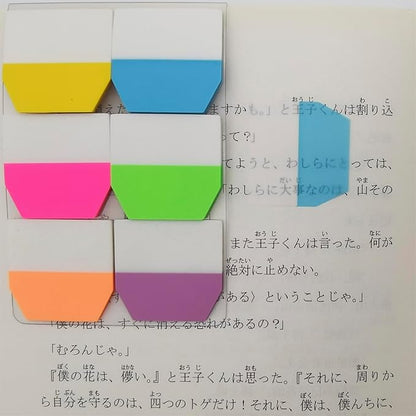 ますかも。」と王子くんは割り込
って？」
てようと、わしらにとっては、
「わしらに大事なのは、山その
また王子くんは言った。何が
絶対に止めない。
がある〉ということじゃ。」
「僕の花は、すぐに消える恐れがあるの？」
「むろんじゃ。」
『僕の花は、儚い。』と王子くんは思った。『それに、周りか
ら自分を守るのは、四つのトゲだけ！それに、僕は、僕んちに、